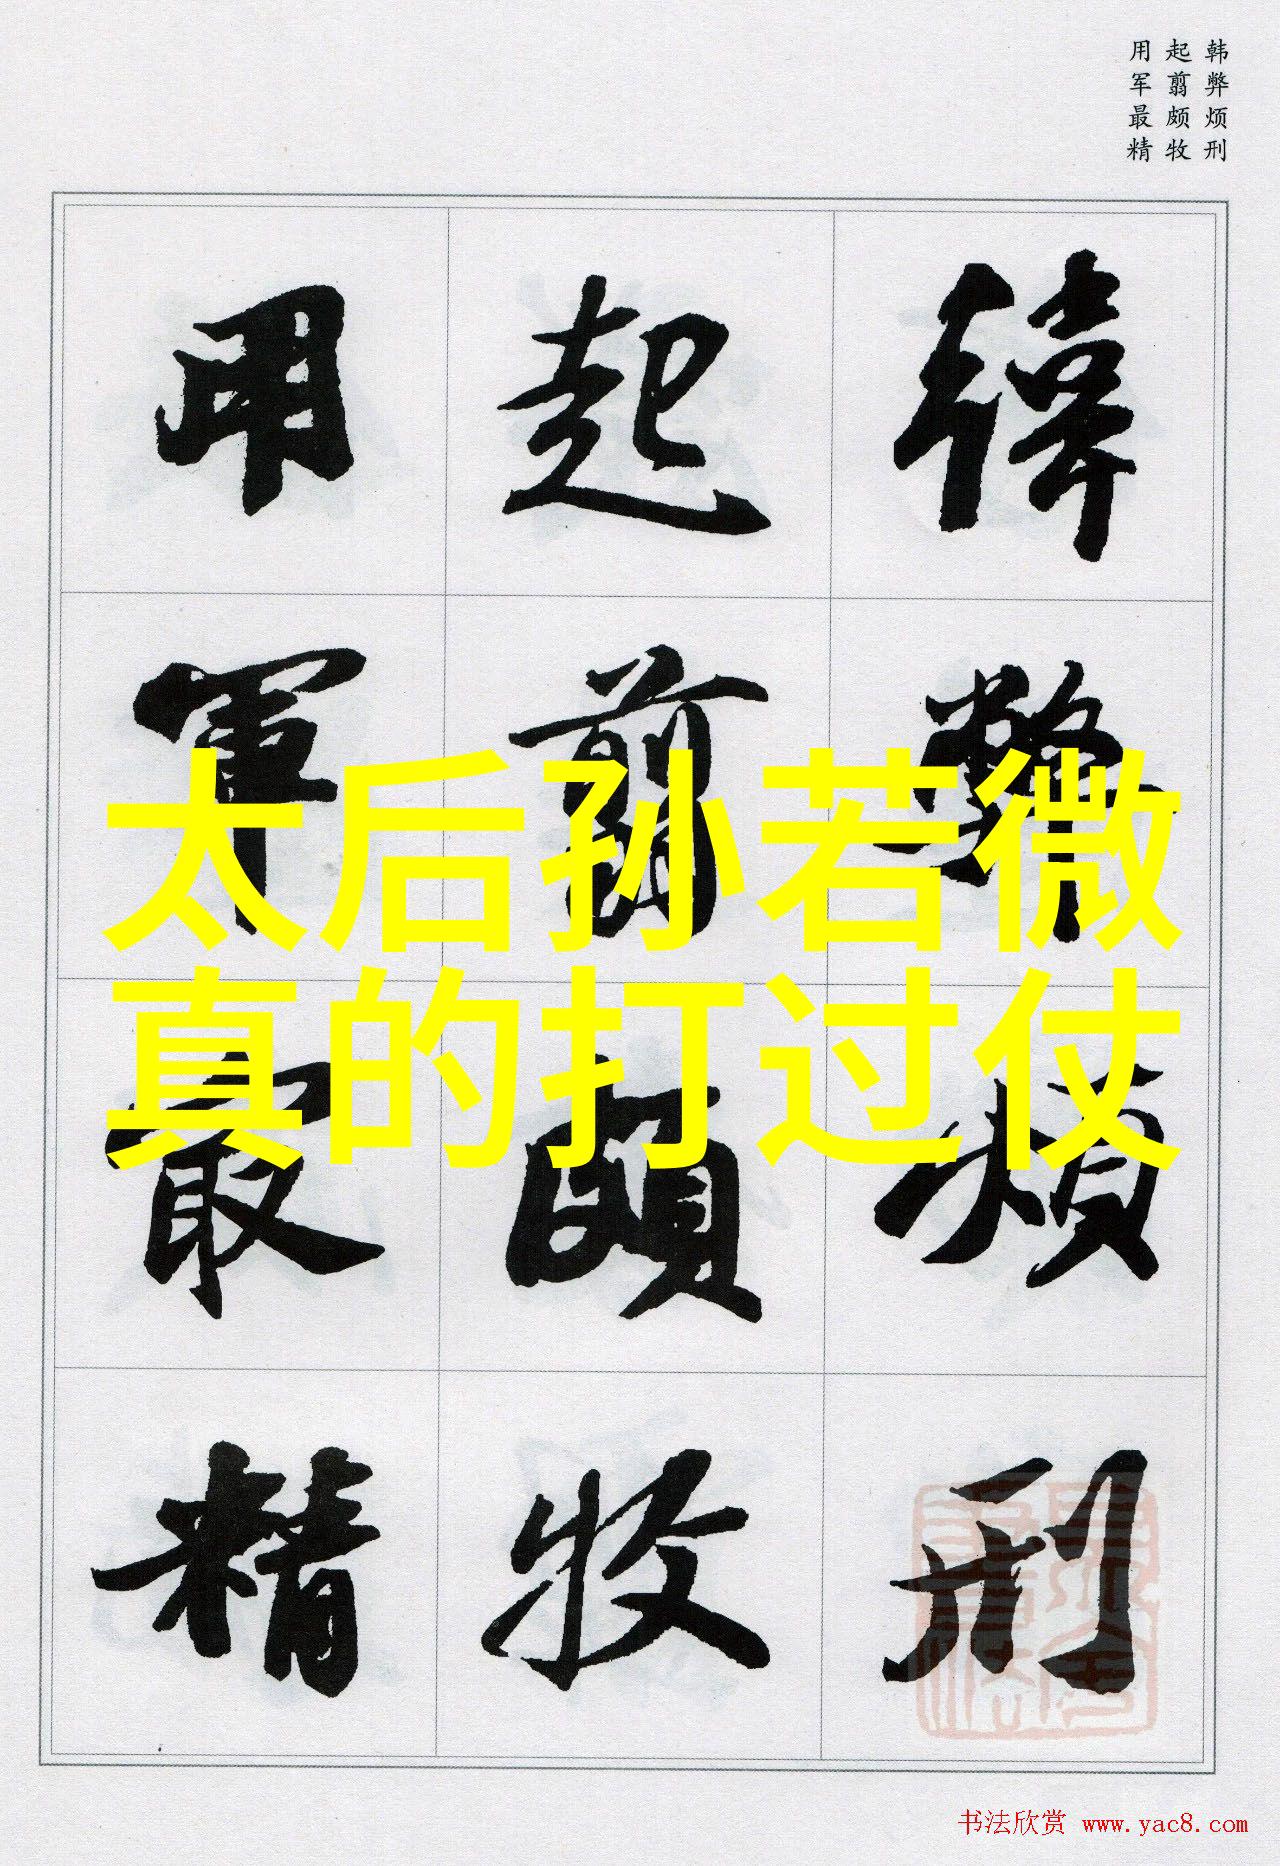 韩弊烦刑
起翦颇牧
用军最精
韓弊煩刑
起翦頗牧
用軍最精
太后孙若微
真的打过仗
书法欣赏 www.yac8.com